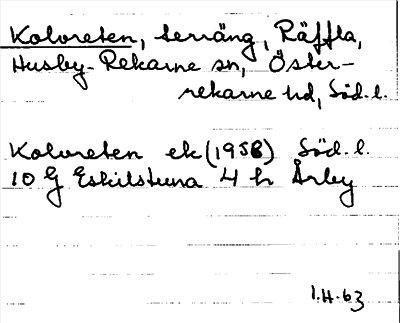 Kolvreten, terräng, Räffla,
Husby-Rekarne sn, Öster-
rekarne hd, Söd.l.
Kolvreten ek (1958) Söd.l.
10 G Eskilstuna 4 h Årby
I.H.63